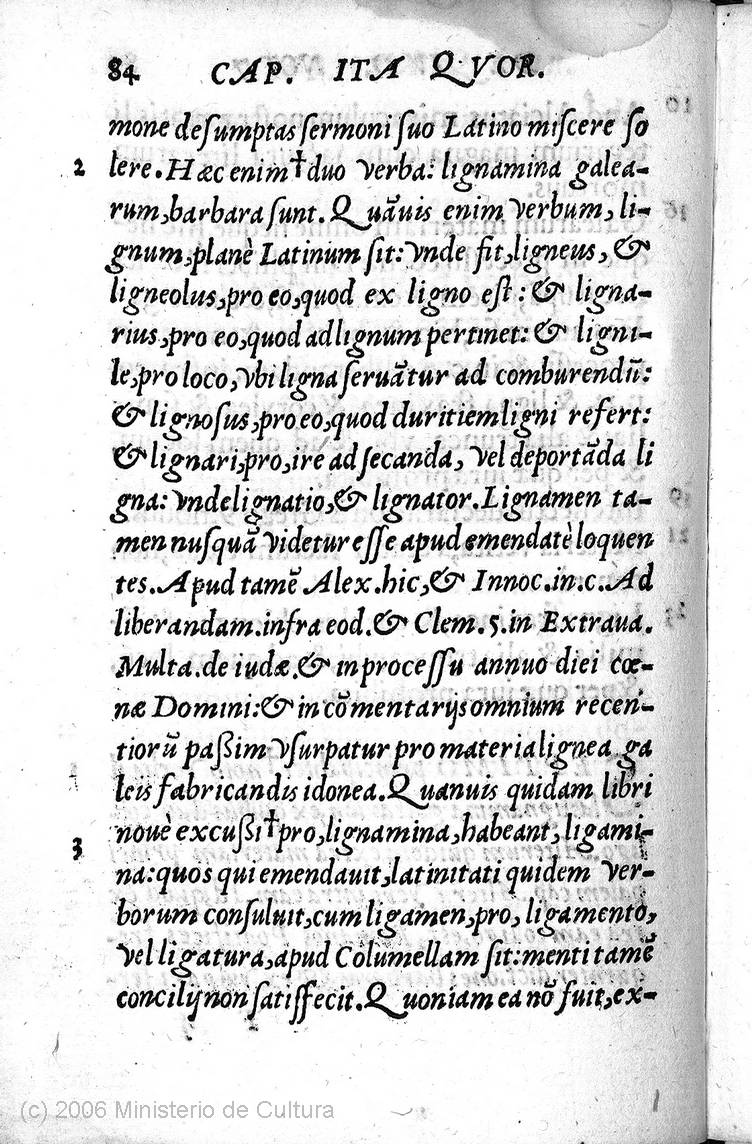 84 CAP. ITA QVOR.
mone desumptas sermoni suo Latino miscere so
2 lere. Hæc enim † duo verba: lignamina galea-
rum, barbara sunt. Quãuis enim verbum, li-
gnum, planè Latinum sit: vnde fit, ligneus, &
ligneolus, pro eo, quod ex ligno est: & ligna-
rius, pro eo, quod ad lignum pertinet: & ligni-
le, pro loco, vbi ligna seruãtur ad comburendũ:
& lignosus, pro eo, quod duritiem ligni refert:
& lignari, pro, ire ad secanda, vel deportãda li
gna: vnde lignatio, & lignator. Lignamen ta-
men nusquã videtur esse apud emendatè loquen
tes. Apud tamẽ Alex. hic, & Innoc. in. c. Ad
liberandam. infra eod. & Clem. 5. in Extraua.
Multa. de iudæ. & in processu annuo diei cœ-
næ Domini: & in cõmentarijs omnium recen-
tiorũ paßim vsurpatur pro materia lignea ga
leis fabricandis idonea. Quanuis quidam libri
3 nouè excußi † pro, lignamina, habeant, ligami-
na: quos qui emendauit, latinitati quidem ver-
borum consuluit, cum ligamen, pro, ligamento,
vel ligatura, apud Columellam sit: menti tamẽ
concilij non satisfecit. Quoniam ea nõ fuit, ex-
(c) 2006 Ministerio de Cultura